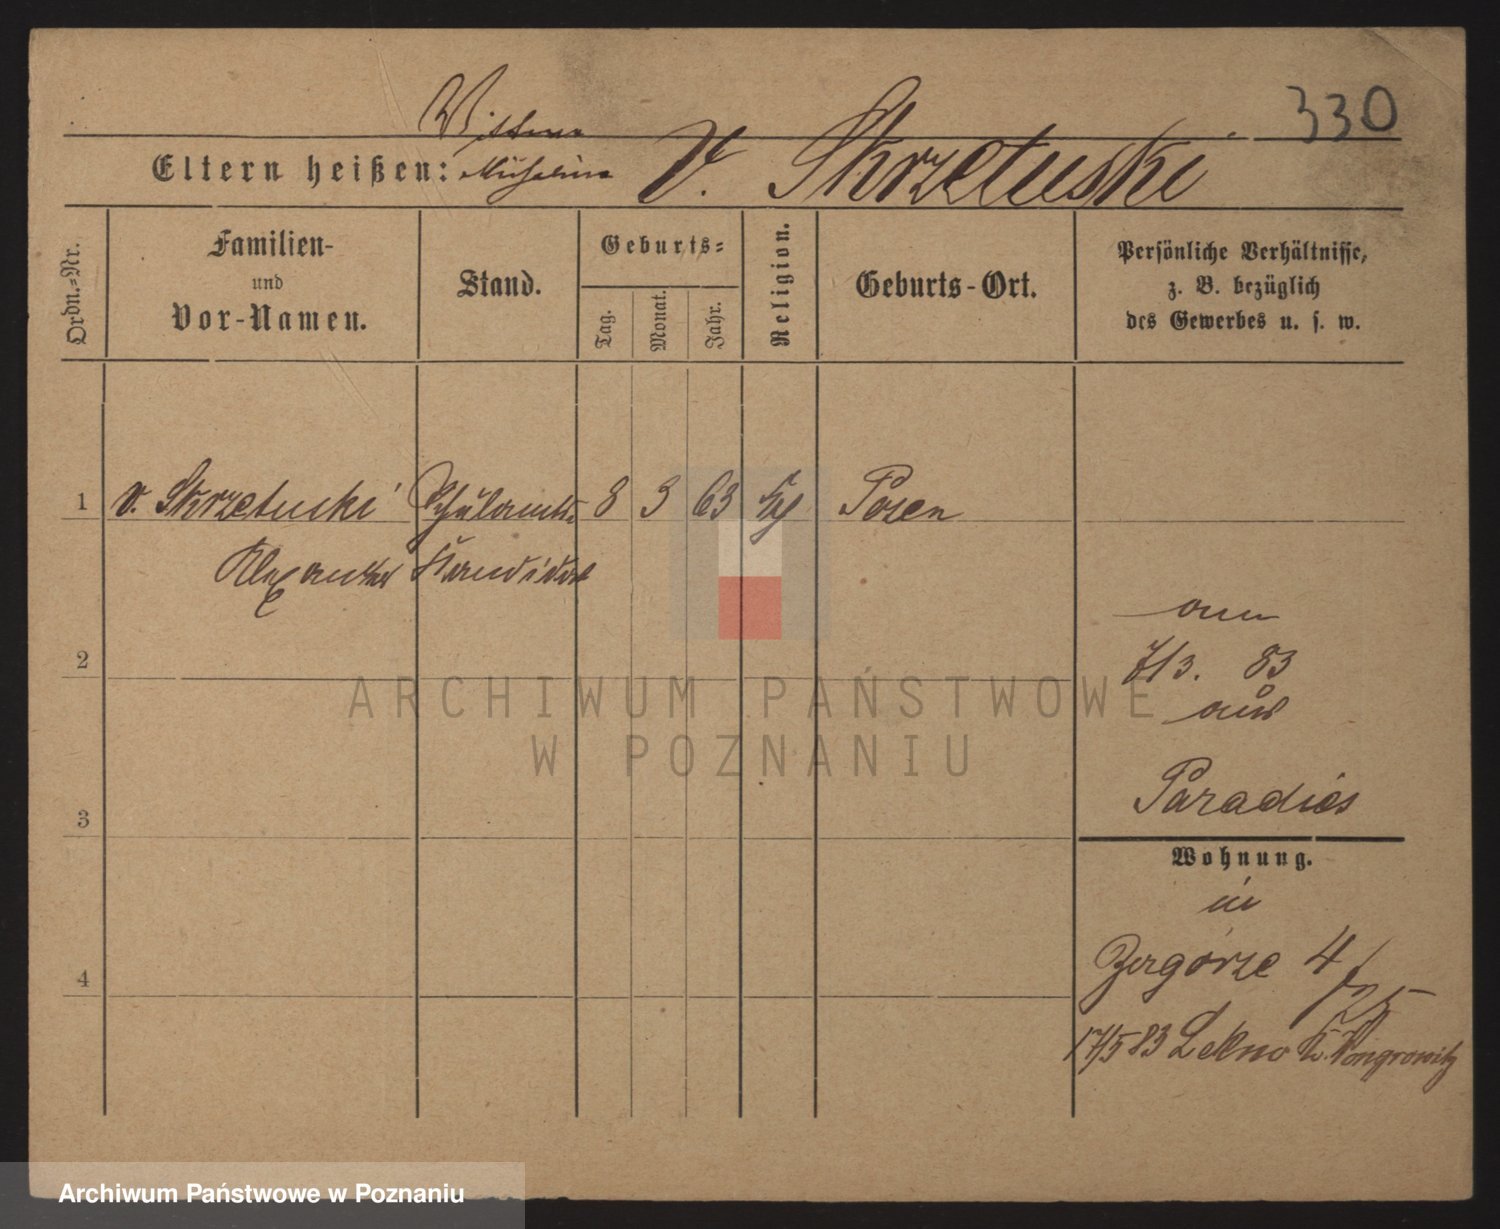 330
V. Skrzetuski
Eltern heißen:
Ordn.-Nr.
Familien-
und
Vor-Namen.
Stand.
Geburts-
Tag.
Monat.
Jahr.
Religion.
Geburts-Ort.
Persönliche Verhältnisse,
z. B. bezüglich
des Gewerbes u. s. w.
1 v. Skrzetuski Schulamts- 8 3 63 Posen
Alexander Kandidat
2
3
4
am
7/3. 83
aus
Paradies
Wohnung.
in
Zagórze 4
17/5 83 Lekno K. Wongrowitz
ARCHIWUM PAŃSTWOWE
W POZNANIU
Archiwum Państwowe w Poznaniu